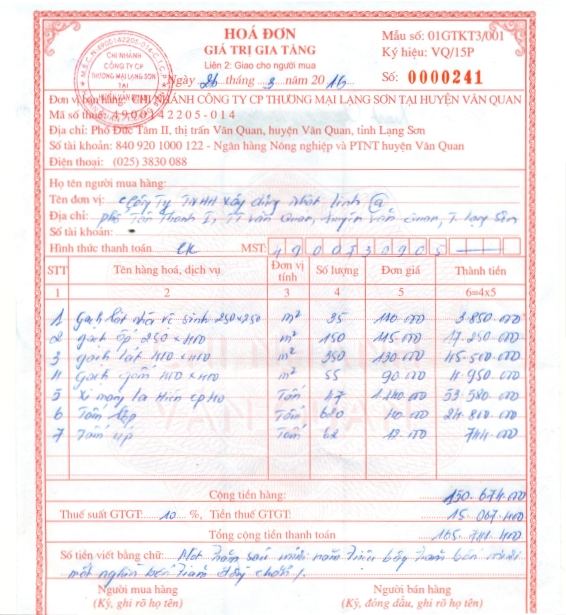 HOÁ ĐƠN
GIÁ TRỊ GIA TĂNG
Liên 2: Giao cho người mua
Ngày 26 tháng 3 năm 2016
Mẫu số: 01GTKT3/001
Ký hiệu: VQ/15P
Số: 0000241
M.S.C.N:4900142205-014
CHI NHÁNH
CÔNG TY CP
THƯƠNG MẠI LẠNG SƠN
TẠI
HUYỆN VĂN QUAN
Đơn vị bán hàng: CHI NHÁNH CÔNG TY CP THƯƠNG MẠI LẠNG SƠN TẠI HUYỆN VĂN QUAN
Mã số thuế: 4900142205-014
Địa chỉ: Phố Đức Tâm II, thị trấn Văn Quan, huyện Văn Quan, tỉnh Lạng Sơn
Số tài khoản: 840 920 1000 122 - Ngân hàng Nông nghiệp và PTNT huyện Văn Quan
Điện thoại: (025) 3830 088
Họ tên người mua hàng:
Tên đơn vị: Công ty TNHH xây dựng nhật linh
Địa chỉ: phố Tân Thanh I, TT Văn Quan, huyện Văn Quan, T. Lạng Sơn
Số tài khoản:
Hình thức thanh toán CK MST: 4900730905
STT Tên hàng hoá, dịch vụ Đơn vị tính Số lượng Đơn giá Thành tiền
1 2 3 4 5 6=4x5
1 Gạch lát nhà vệ sinh 250x250 m² 35 110.000 3.850.000
2 gạch ốp 250 x 400 m² 150 115.000 17.250.000
3 gạch lát 400 x 400 m² 350 130.000 45.500.000
4 Gạch gốm 400 x 400 m² 55 90.000 4.950.000
5 Xi măng La Hiên Tấn 47 1.140.000 53.580.000
6 Tấm lợp Tấm 620 40.000 24.800.000
7 Tấm úp Tấm 62 12.000 744.000
Cộng tiền hàng: 150.674.000
Thuế suất GTGT: 10 %, Tiền thuế GTGT: 15.067.400
Tổng cộng tiền thanh toán 165.741.400
Số tiền viết bằng chữ: Một trăm sáu mươi năm triệu bảy trăm bốn mươi
một nghìn bốn trăm đồng chẵn /.
Người mua hàng Người bán hàng
(Ký, ghi rõ họ tên) (Ký, đóng dấu, ghi rõ họ tên)